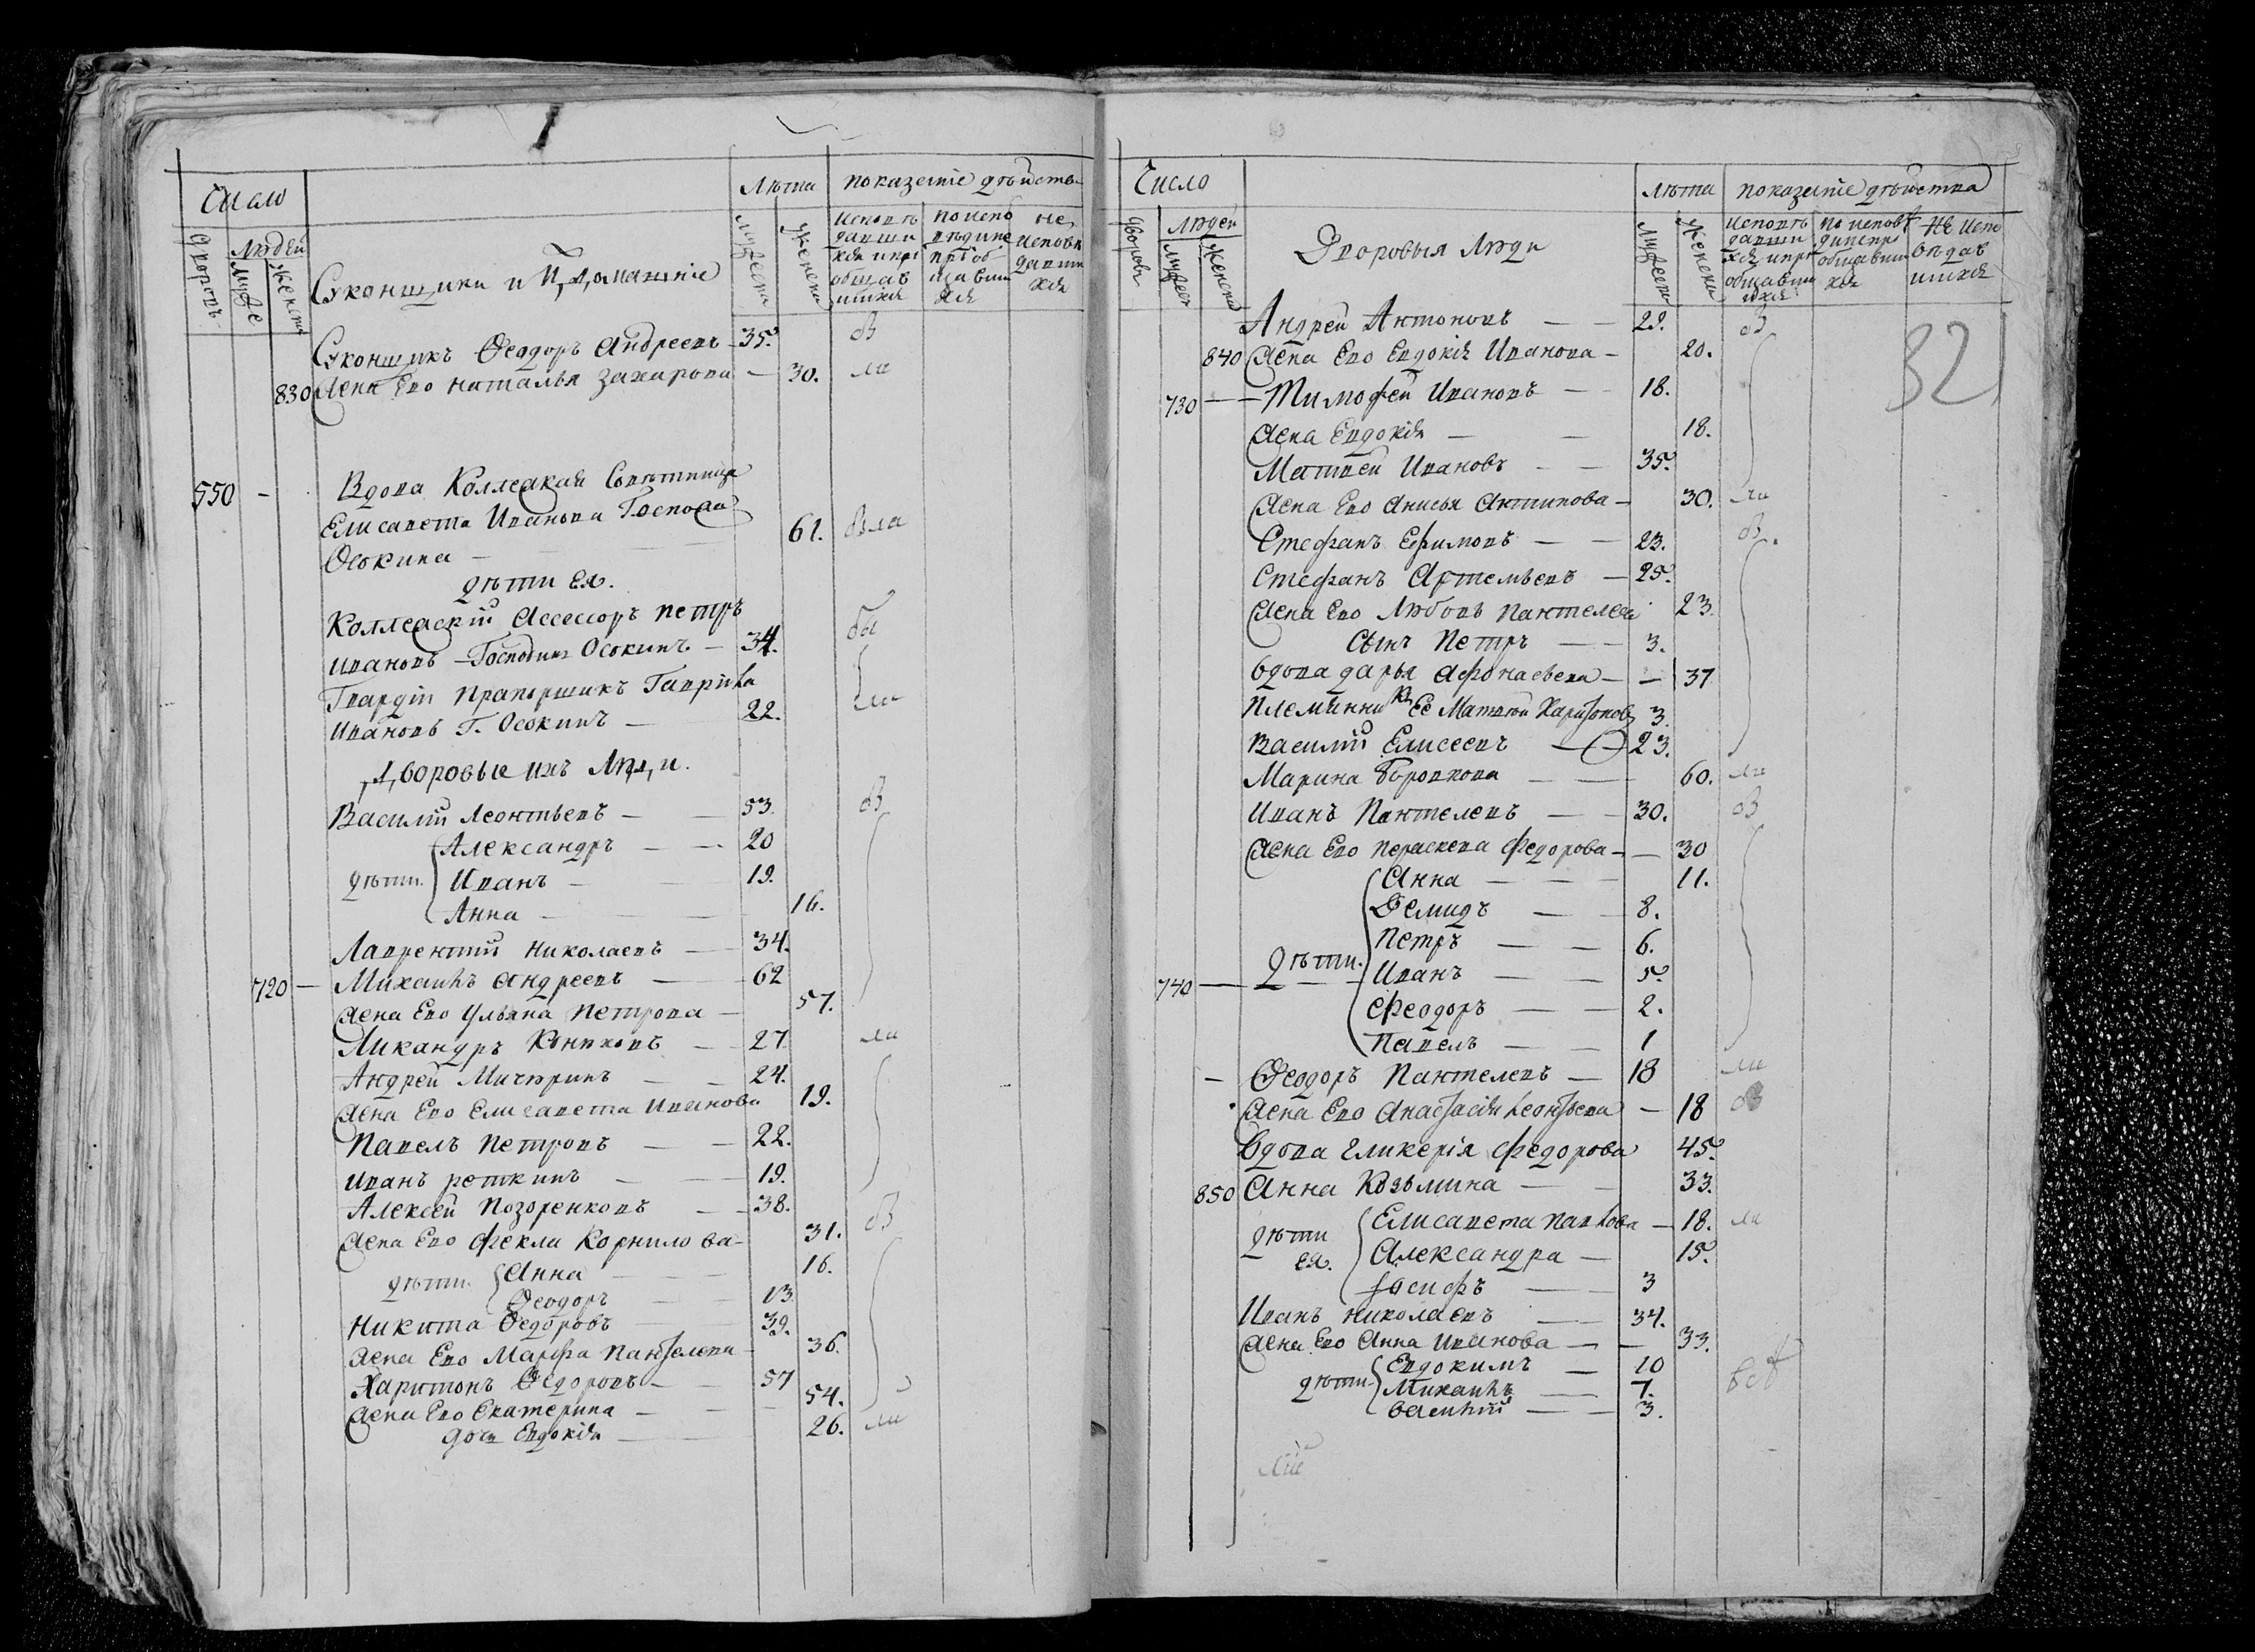 Число
Лѣта показаніе дѣйства
дворовъ Людей Мужес Женска
Суконщики и домашніе
Мужеска Женска
Исповѣ давши хся и прі общав шихся
по испо вѣди не пріоб щавши хся
не исповѣ давши хся
Суконщикъ Ѳеодоръ Андреевъ 35.
830 Жена Ево Наталья Захарова — 30.
550 — Вдова Коллежская Совѣтница
Елисавета Иванова Госпожа 61.
Осокина —
дѣти Ея.
Коллежскій Ассессоръ Петръ
Ивановъ — Господинъ Осокинъ — 34.
Гвардіи Прапорщикъ Гаврійла
Ивановъ Г. Осокинъ — 22.
Дворовые ихъ Люди.
Василій Леонтьевъ — 53.
Александръ — 20
дѣти. Иванъ — 19.
Анна — 16.
Лаврентій Николаевъ — 34.
720 — Михаилъ Андреевъ — 62
Жена Ево Ульяна Петрова — 57.
Никандръ — 27
Андрей Мичюринъ — 24.
Жена Ево Елисавета Иванова 19.
Павелъ Петровъ — 22.
Иванъ Реткинъ — 19.
Алексѣй Позоренковъ — 38.
Жена Ево Фекла Корнилова — 31.
дѣти. Анна — 16.
Ѳеодоръ — 13
Никита Ѳедоровъ 39.
Жена Ево Марфа Пантелева 36.
Харитонъ Ѳедоровъ — 57
Жена Ево Екатерина — 54.
дочь Евдокія 26.
Число
Лѣта показаніе дѣйства
дворовъ Людей Мужес Женска
Дворовыя Люди
Мужеска Женска
Исповѣ давши хся и прі общавши ихся
по исповѣ ди не прі общавши хся
не испо вѣдав шихся
Андрей Антоновъ — 29.
32
840 Жена Ево Евдокія Иванова — 20.
730 — Тимофей Ивановъ — 18.
Жена Евдокія — 18.
Матвей Ивановъ — 35.
Жена Ево Анисья Антипова — 30.
Стефанъ Ефимовъ — 23.
Стефанъ Артемьевъ — 25.
Жена Ево Любовь Пантелева 23.
Сынъ Петръ — 3.
Вдова Дарья Афонасьева — 37
Племянникъ Ее Матвѣй Харитоновъ 3.
Василий Елисеевъ — 23.
Марина Боровкова — 60.
Иванъ Пантелевъ — 30.
Жена Ево Пераскева Федорова — 30
Анна — 11.
Демидъ — 8.
Петръ — 6.
740 — Дѣти. Иванъ — 5.
Феодоръ — 2.
Павелъ — 1
— Ѳеодоръ Пантелевъ — 18
Жена Ево Анастасія Леонтьева — 18
Вдова Гликерія Федорова 45.
850 Анна Козьмина — 33.
дѣти Елисавета Павлова — 18.
ея. Александра — 15.
Іосифъ — 3
Иванъ Николаевъ — 34.
Жена Ево Анна Иванова — 33.
Евдокимъ — 10
дѣти. Михаилъ — 7.
Василій — 3.